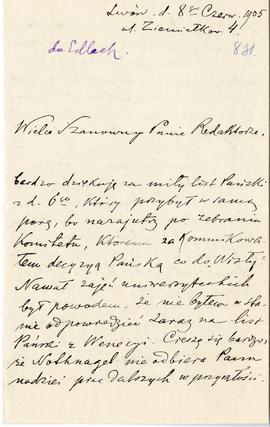 Lwów, d. 8go Czerw. 1905
ul. Ziemiałkow. 4.
do Edlach. 831.
Wielce Szanowny Panie Redaktorze,
bardzo dziękuję za miły list Pański
z d. 6go, który przybył w samą
porę, bo nazajutrz po zebraniu
Komitetu, któremu zakomunikowa-
łem decyzyą Pańską co do
Nawał zajęć uniwersyteckich
był powodem, że nie byłem w sta-
nie odpowiedzieć zaraz na list
Pański z Wenecyi. Cieszę się bardzo,
że Nothnagel nie odbiera Panu
nadziei prac dalszych w przyszłości.